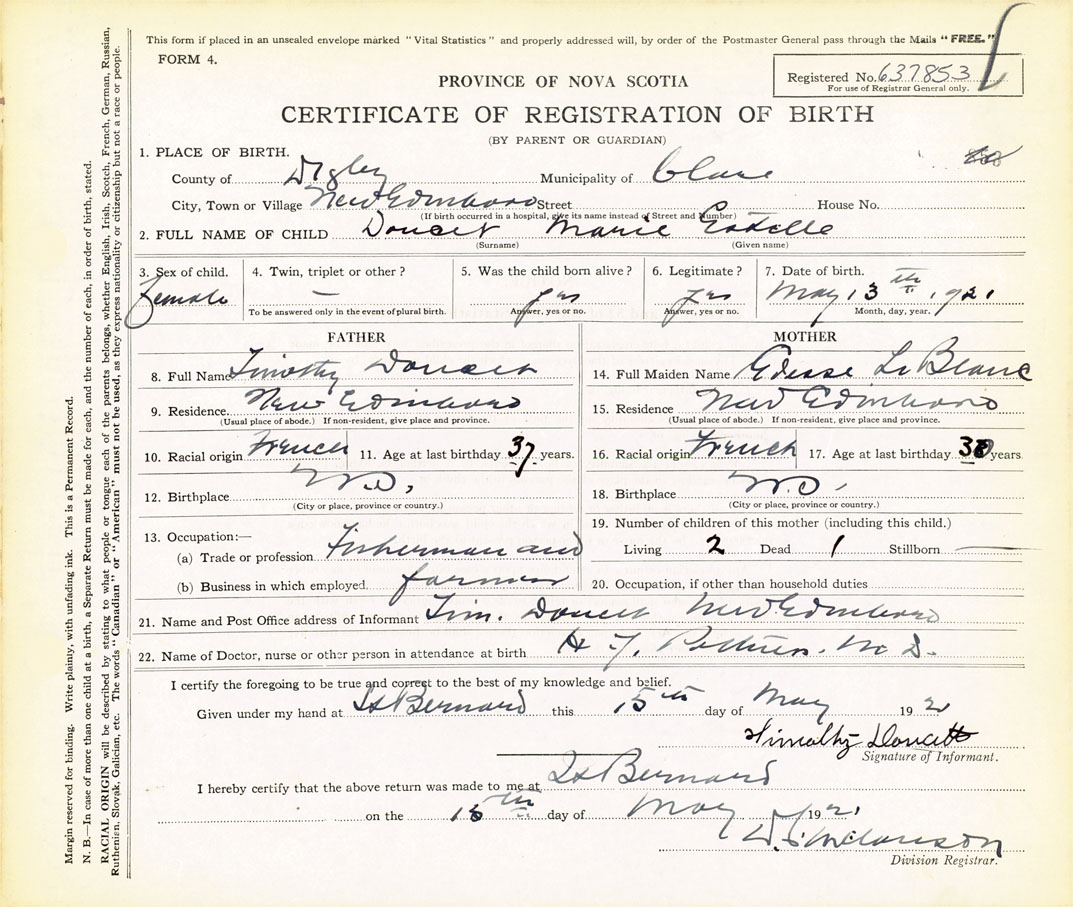 This form if placed in an unsealed envelope marked "Vital Statistics" and properly addressed will, by order of the Postmaster General pass through the Mails "FREE."
FORM 4.
Registered No. 637853
For use of Registrar General only.
PROVINCE OF NOVA SCOTIA
CERTIFICATE OF REGISTRATION OF BIRTH
(BY PARENT OR GUARDIAN)
1. PLACE OF BIRTH.
County of Digby Municipality of Clare
City, Town or Village New Edinboro Street House No.
(If birth occurred in a hospital, give its name instead of Street and Number)
2. FULL NAME OF CHILD Doucet Marie Estelle
(Surname) (Given name)
3. Sex of child. 4. Twin, triplet or other? 5. Was the child born alive? 6. Legitimate? 7. Date of birth.
Female — yes yes May 13th, 1921
To be answered only in the event of plural birth. Answer, yes or no. Answer, yes or no. Month, day, year.
FATHER
8. Full Name Timothy Doucet
9. Residence. New Edinboro
(Usual place of abode.) If non-resident, give place and province.
10. Racial origin French 11. Age at last birthday 37 years.
12. Birthplace N.S,
(City or place, province or country.)
13. Occupation:—
(a) Trade or profession Fisherman and
(b) Business in which employed. farmer
MOTHER
14. Full Maiden Name Edesse LeBlanc
15. Residence New Edinboro
(Usual place of abode.) If non-resident, give place and province.
16. Racial origin French 17. Age at last birthday years
18. Birthplace N.S,
(City or place, province or country.)
19. Number of children of this mother (including this child.)
Living 2 Dead 1 Stillborn —
20. Occupation, if other than household duties
21. Name and Post Office address of Informant Tim. Doucet New Edinboro
22. Name of Doctor, nurse or other person in attendance at birth M D.
I certify the foregoing to be true and correct to the best of my knowledge and belief.
Given under my hand at St Bernard this 15th day of May 192
Timothy Doucett
Signature of Informant.
I hereby certify that the above return was made to me at St Bernard
on the 15th day of May 1921
Division Registrar.
Margin reserved for binding. Write plainly, with unfading ink. This is a Permanent Record.
N. B.—In case of more than one child at a birth, a Separate Return must be made for each, and the number of each, in order of birth, stated.
RACIAL ORIGIN will be described by stating to what people or tongue each of the parents belongs, whether English, Irish, Scotch, French, German, Russian,
Ruthenian, Slovak, Galician, etc. The words "Canadian" or "American" must not be used, as they express nationality or citizenship but not a race or people.